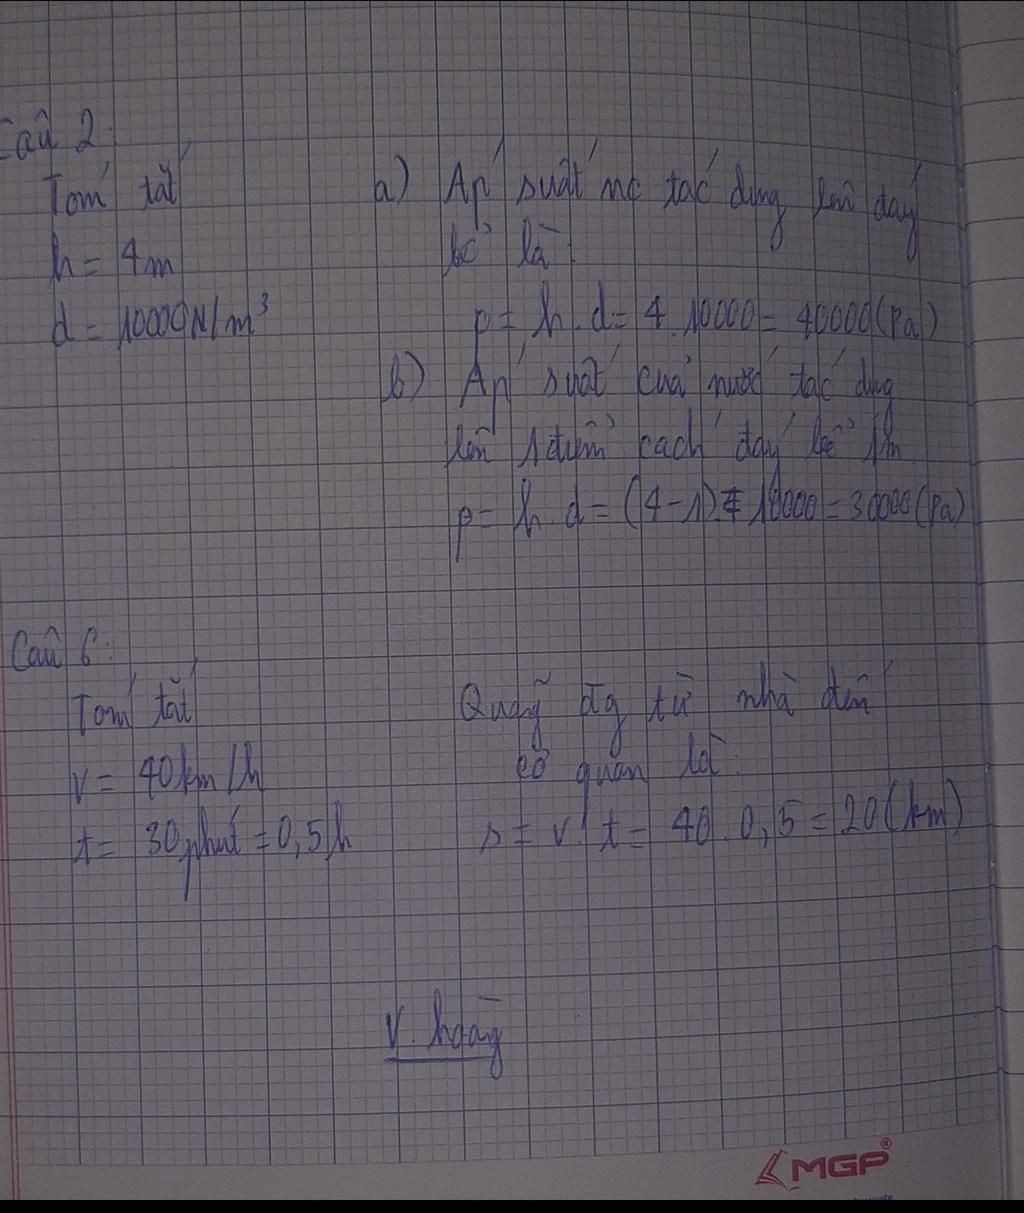 Câu 2:
Tóm tắt
h = 4m
d = 10000N/m³
a) Áp suất nc tác dụng lên đáy
bể là:
p = h.d = 4.10000 = 40000(Pa)
b) Áp suất của nước tác dụng
lên 1 điểm cách đáy bể 1m
p = h.d = (4-1).10000 = 30000(Pa)
Câu 6:
Tóm tắt
v = 40km/h
t = 30phút = 0,5h
Quãng đg từ nhà đến
cơ quan là:
s = v.t = 40.0,5 = 20(km)
V. hoàng
MGP®